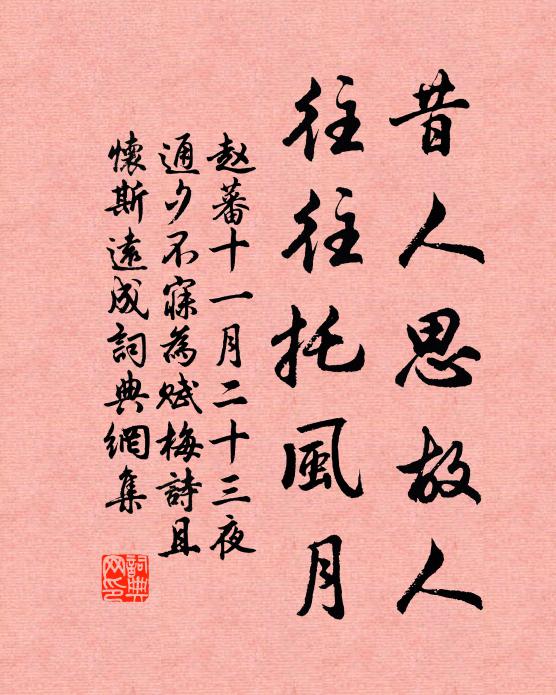 昔人思故人
往往托風月
赵蕃十一月二十三夜
通夕不寐為赋梅詩且
懷斯遠成詞典網集
詞典
网印